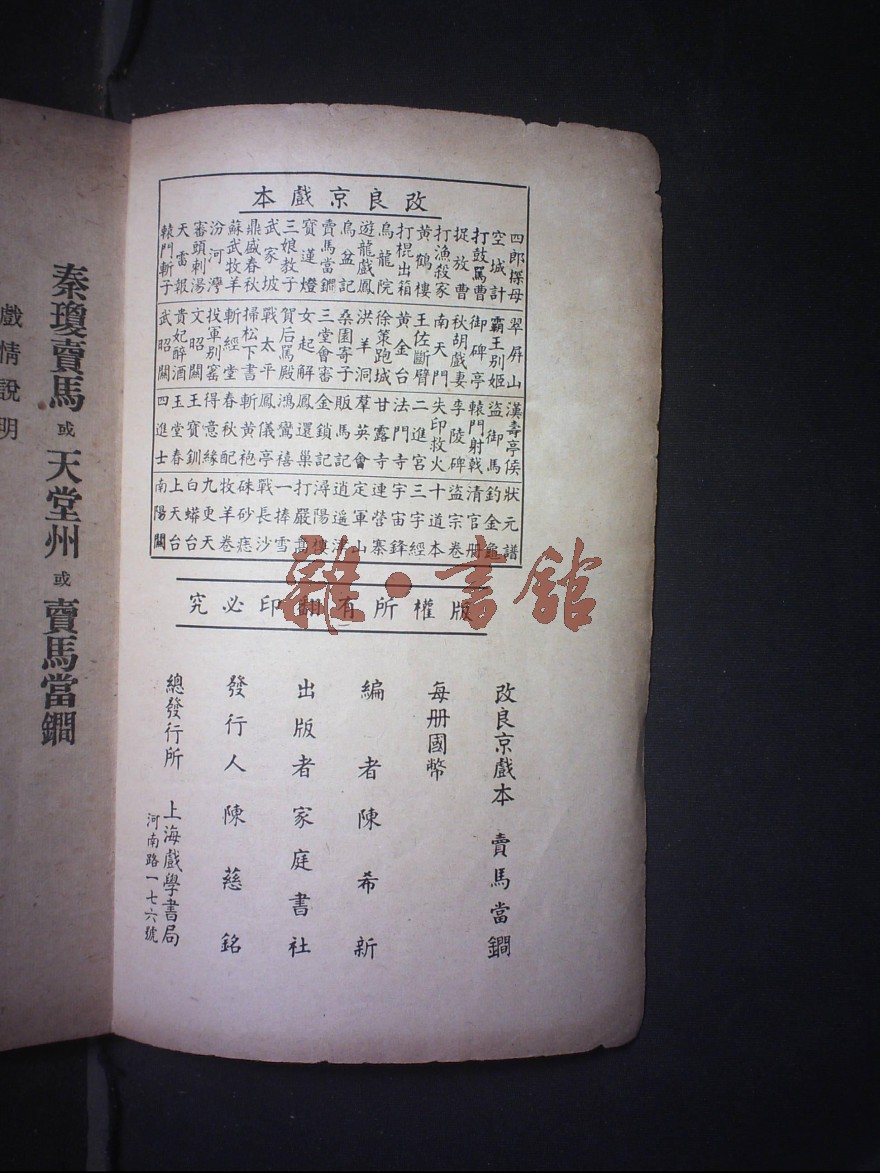 改良京戲本
四郎探母
空城計
打鼓罵曹
捉放曹
打漁殺家
黃鶴樓
打棍出箱
烏龍院
遊龍戲鳳
烏盆記
賣馬當鐧
寶蓮燈
三娘教子
武家坡
鼎盛春秋
蘇武牧羊
汾河灣
審頭刺湯
天雷報
轅門斬子
翠屏山
霸王別姬
御碑亭
秋胡戲妻
南天門
王佐斷臂
黃金台
徐策跑城
洪羊洞
桑園寄子
三堂會審
女起解
賀后罵殿
戰太平
掃松下書
斬經堂
投軍別窰
文昭關
貴妃醉酒
武昭關
漢壽亭侯
盜御馬
轅門射戟
李陵碑
失印救火
二進宮
法門寺
甘露寺
羣英會
販馬記
金鎖記
鳳還巢
鴻鸞禧
鳳儀亭
斬黃袍
春秋配
得意緣
王寶釧
玉堂春
四進士
狀元譜
釣金龜
清官冊
盜宗卷
十道本
三字經
宇宙鋒
連營寨
定軍山
逍遥津
潯陽樓
打嚴嵩
一捧雪
戰長沙
硃砂痣
牧羊卷
九更天
白蟒台
上天台
南陽關
版權所有翻印必究
雜·書館
改良京戲本 賣馬當鐧
每册國幣
編者陳希新
出版者家庭書社
發行人陳慈銘
總發行所 上海戲學書局
河南路一七六號
秦瓊賣馬 或 天堂州 或 賣馬當鐧
戲情說明